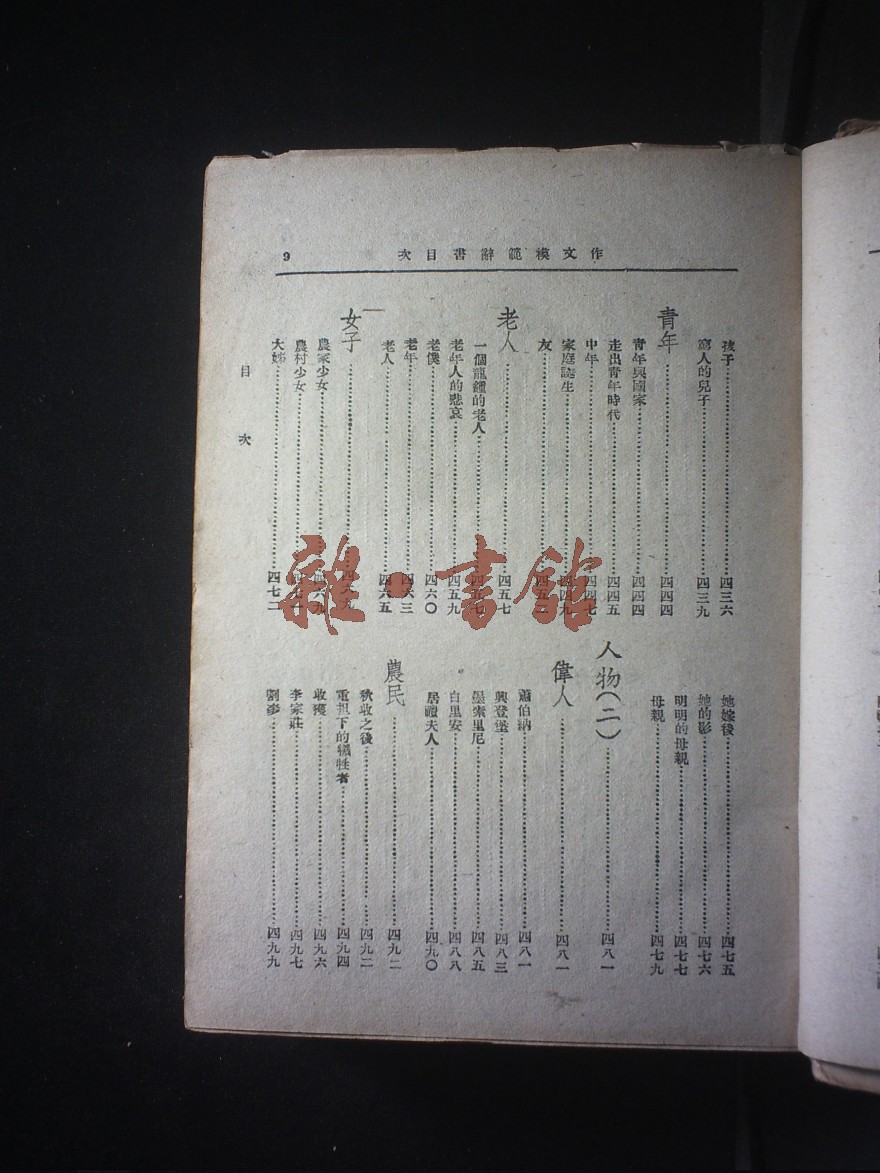 作文模範辭書目次
9
孩子……四三六
窮人的兒子……四三九
青年……四四四
青年與國家……四四四
走出青年時代……四四五
中年……四四七
家庭誕生……四四九
友……四五二
老人……四五七
一個龍鍾的老人……四五七
老年人的悲哀……四五九
老僕……四六〇
老年……四六三
老人……四六五
女子……四六九
農家少女……四六九
農村少女……四七一
大姊……四七二
她嫁後……四七五
她的影……四七六
明明的母親……四七七
母親……四七九
人物(二)……四八一
偉人……四八一
蕭伯納……四八一
興登堡……四八三
墨索里尼……四八五
白里安……四八八
居禮夫人……四九〇
農民……四九二
秋收之後……四九二
重担下的犧牲者……四九四
收穫……四九六
李家莊……四九七
割麥……四九九
目次
雜·書館